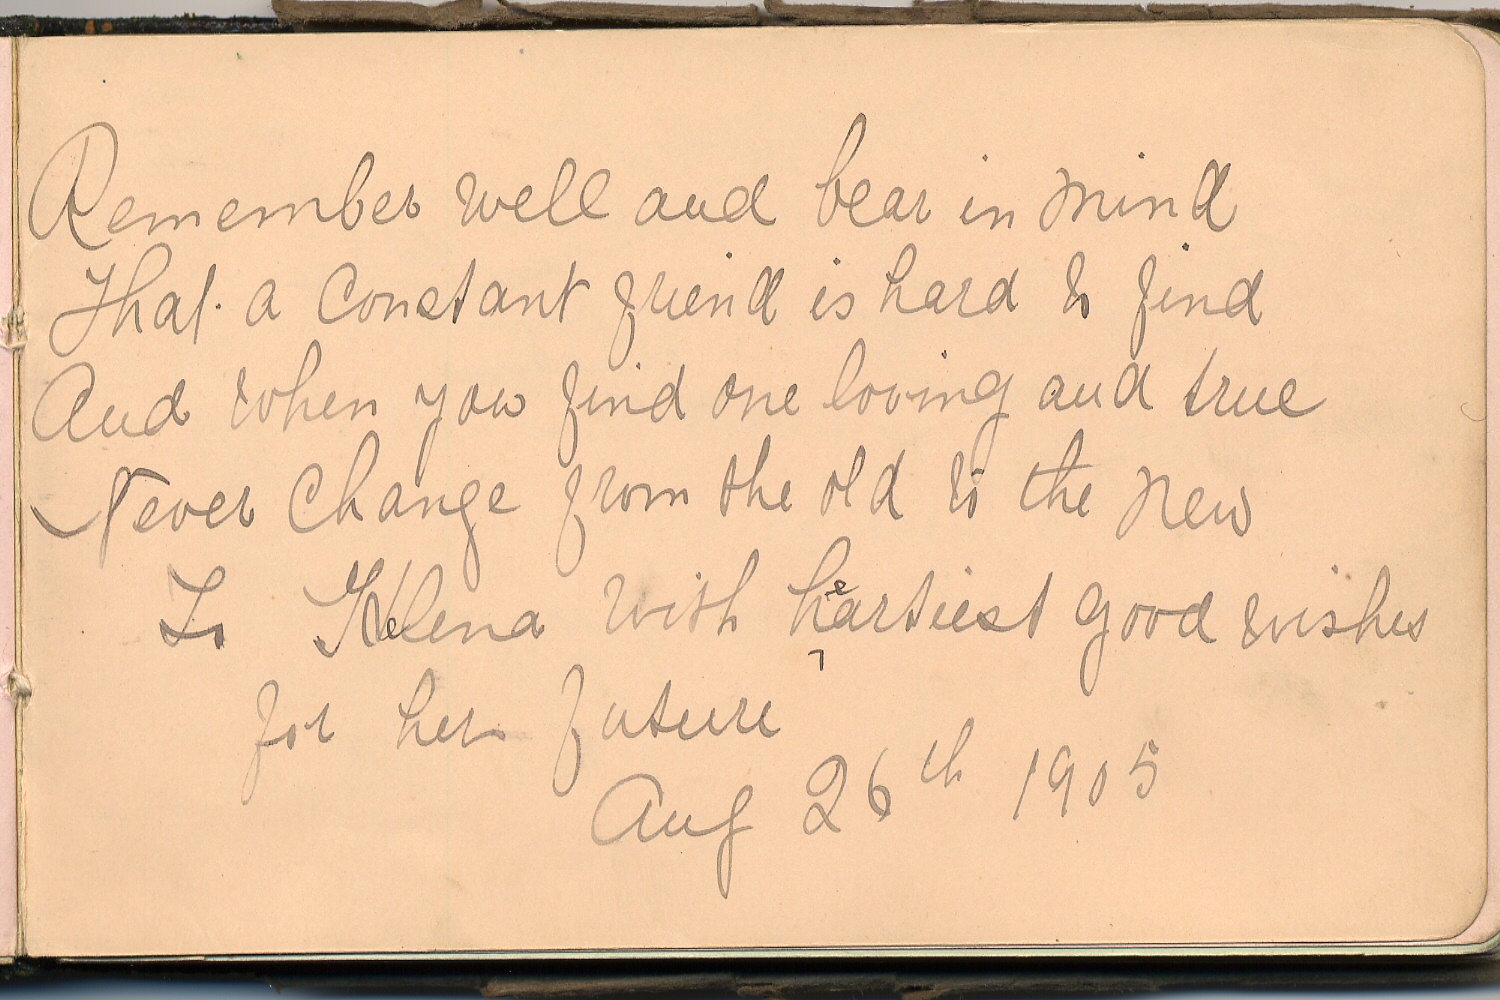 Remember well and bear in mind
That a constant friend is hard to find
And when you find one loving and true
Never Change from the old to the new
To Helena with heartiest good wishes
for her future
Aug 26th 1905